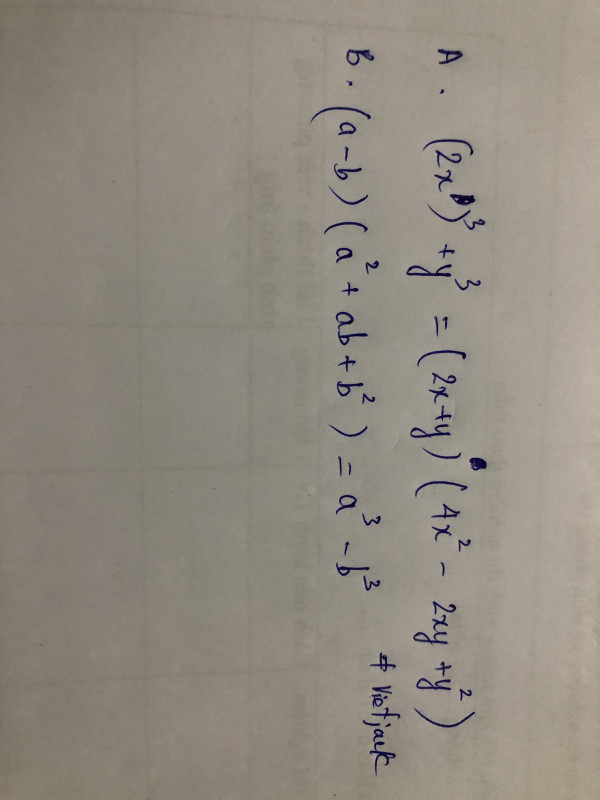 A. (2x)³ + y³ = (2x+y) (4x² - 2xy + y²)
B. (a-b) (a² + ab + b²) = a³ - b³
# Vietjack